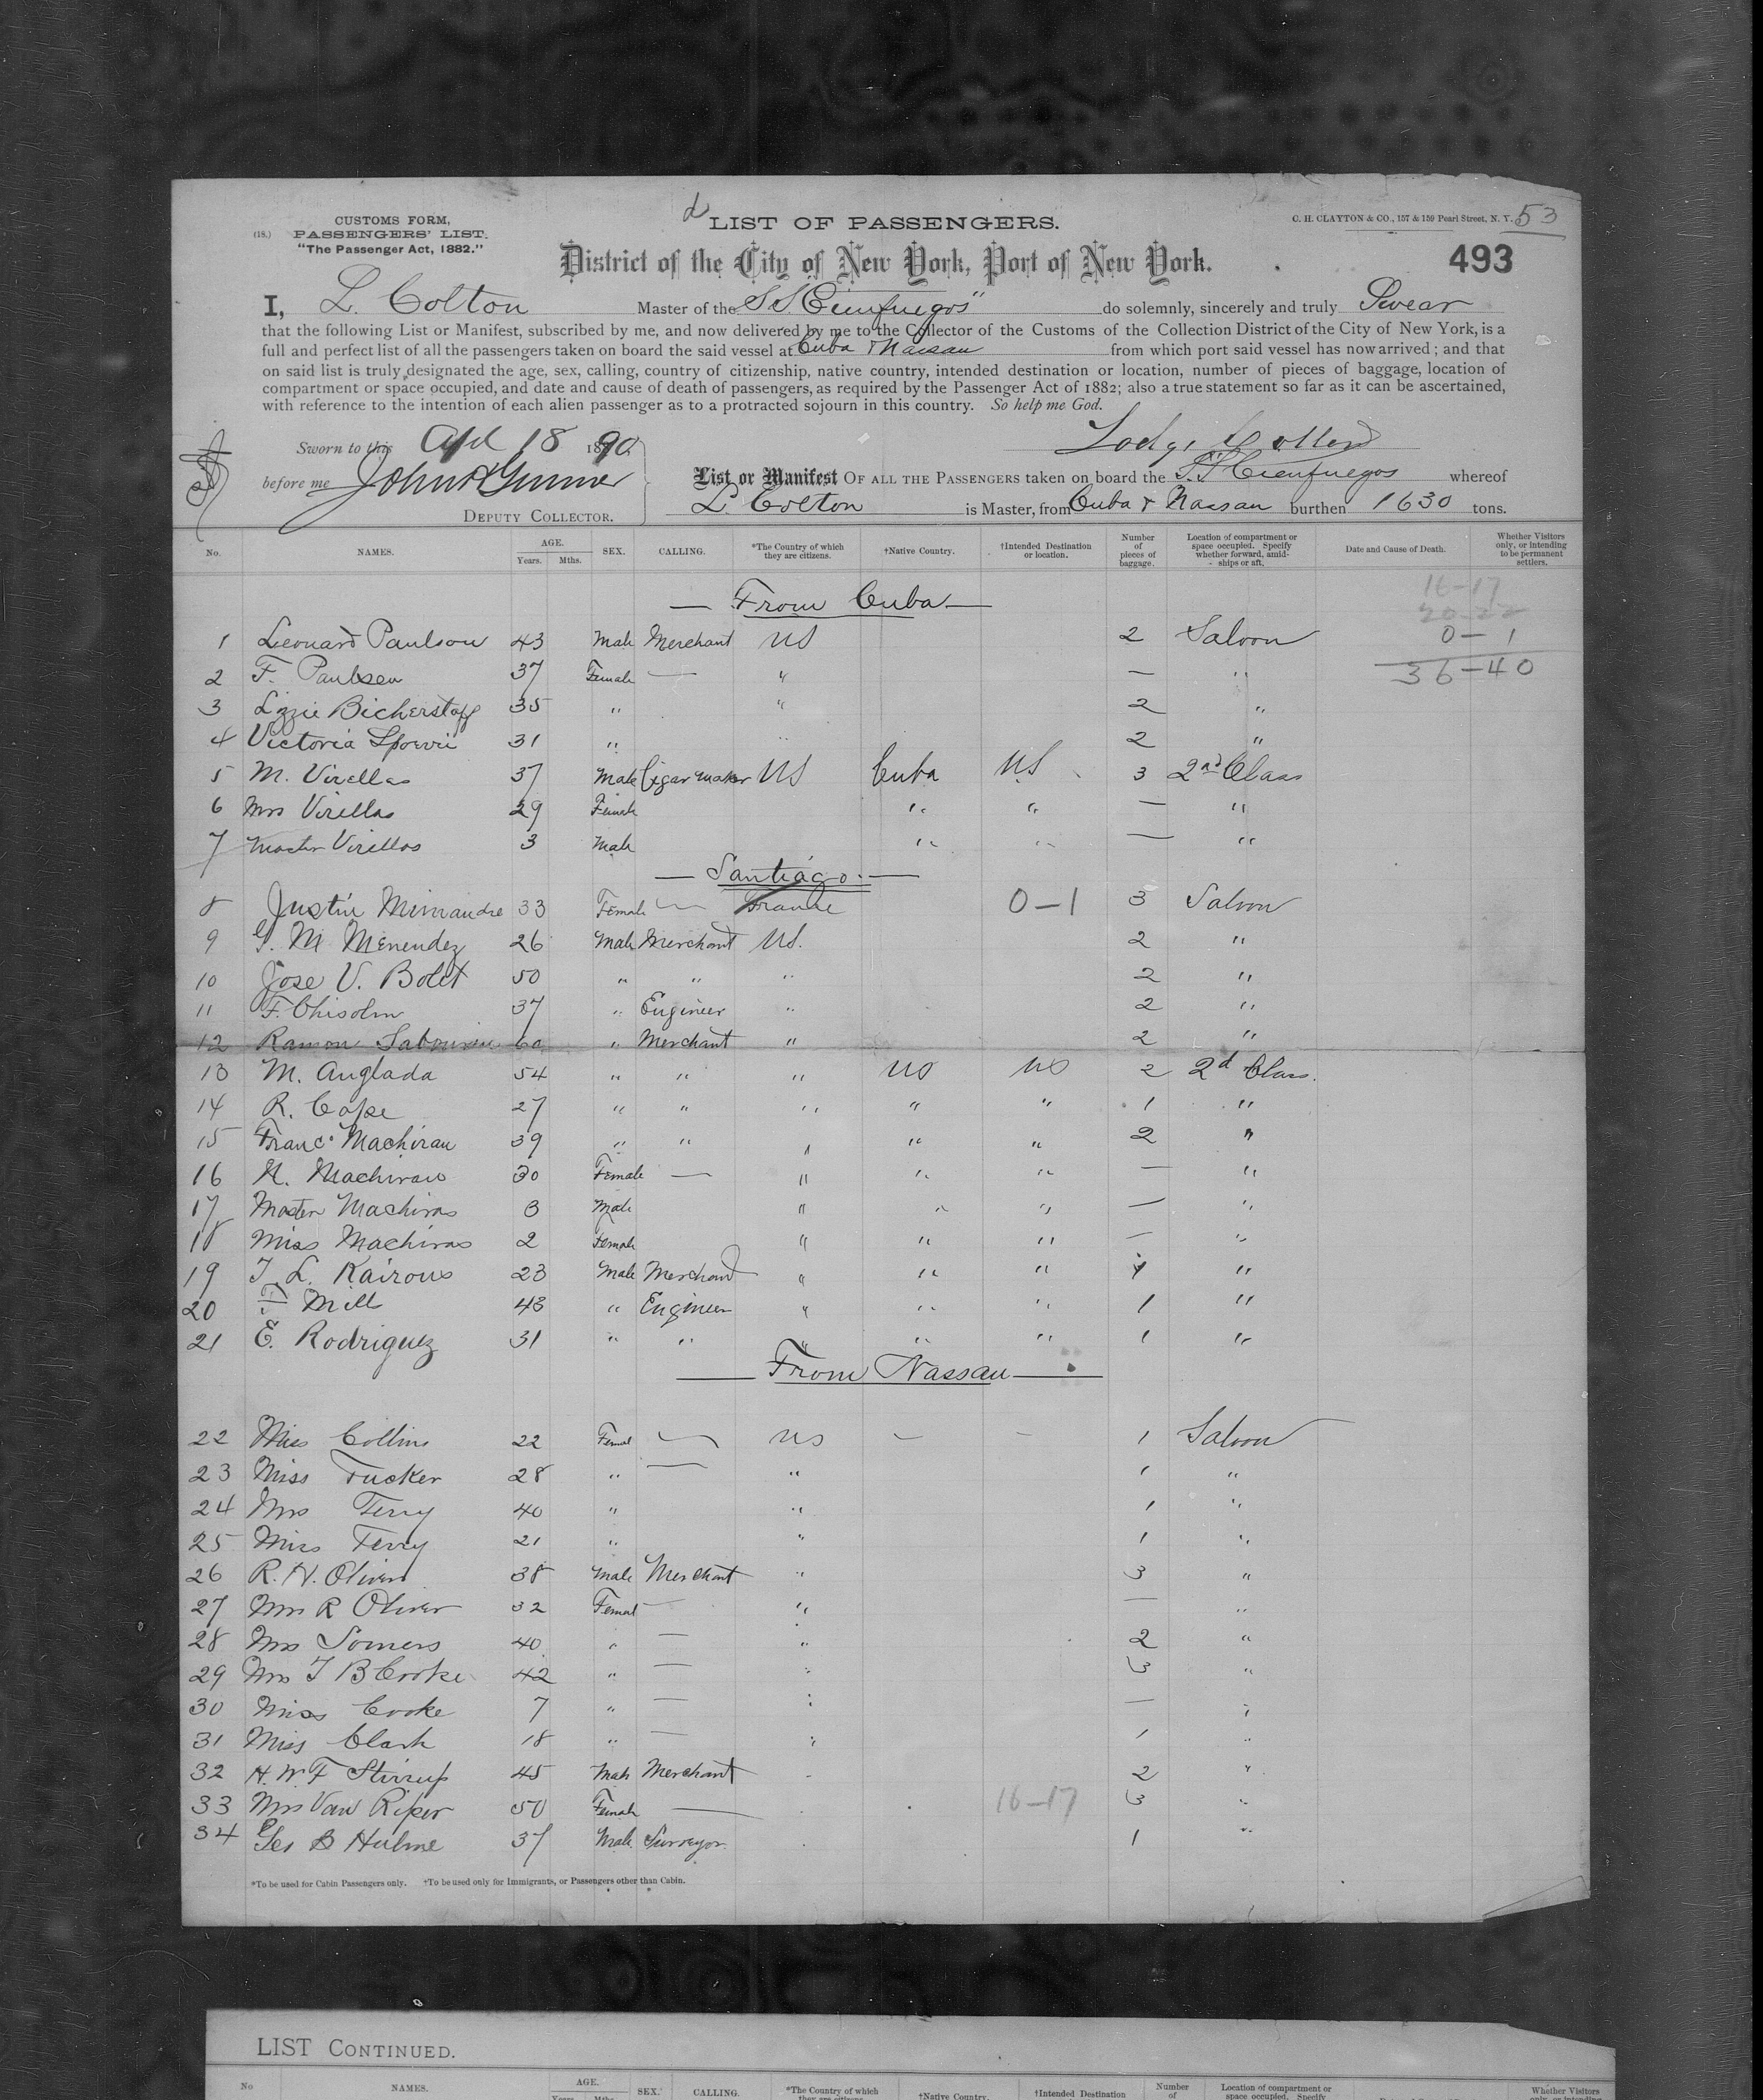 d LIST OF PASSENGERS.
CUSTOMS FORM,
(18.) PASSENGERS' LIST.
"The Passenger Act, 1882."
C. H. CLAYTON & CO., 157 & 159 Pearl Street, N. Y. 53
District of the City of New York, Port of New York. 493
I, L. Colton Master of the S.S. "Cienfuegos" do solemnly, sincerely and truly Swear
that the following List or Manifest, subscribed by me, and now delivered by me to the Collector of the Customs of the Collection District of the City of New York, is a
full and perfect list of all the passengers taken on board the said vessel at Cuba & Nassau from which port said vessel has now arrived; and that
on said list is truly designated the age, sex, calling, country of citizenship, native country, intended destination or location, number of pieces of baggage, location of
compartment or space occupied, and date and cause of death of passengers, as required by the Passenger Act of 1882; also a true statement so far as it can be ascertained,
with reference to the intention of each alien passenger as to a protracted sojourn in this country. So help me God.
Sworn to this Apl 18 1890
before me
DEPUTY COLLECTOR.
List or Manifest OF ALL THE PASSENGERS taken on board the S.S. Cienfuegos whereof
L. Colton is Master, from Cuba & Nassau burthen 1630 tons.
No. NAMES. AGE. Years. Mths. SEX. CALLING. *The Country of which they are citizens. †Native Country. †Intended Destination or location. Number of pieces of baggage. Location of compartment or space occupied. Specify whether forward, amidships or aft. Date and Cause of Death. Whether Visitors only, or intending to be permanent settlers.
16-17
20-22
— From Cuba —
1 Leonard Paulson 43 Male Merchant US 2 Saloon 0-1
2 F. Paulsen 37 Female — " — " 36-40
3 Lizzie Bicherstaff 35 " " 2 "
4 Victoria 31 " " 2 "
5 M. Virellas 37 Male Cigar maker US Cuba US 3 2nd Class
6 Mrs Virellas 29 Female " " — "
7 Master Virellas 3 Male " " — "
— Santiago. —
8 Justin Mimandre 33 Female — France 0-1 3 Saloon
9 G. M Menendez 26 Male Merchant US. 2 "
10 Jose V. Bolet 50 " " " 2 "
11 F. Chisolm 37 " Engineer " 2 "
12 Ramon 60 " Merchant " 2 "
13 M. Anglada 54 " " " US US 2 2d Class.
14 R. Cape 27 " " " " " 1 "
15 Franco Machirau 39 " " " " " 2 "
16 N. Machirau 30 Female — " " " — "
17 Master Machiras 3 Male " " " — "
18 Miss Machiras 2 Female " " " — "
19 T. L. Kairous 23 Male Merchant " " " 1 "
20 T Mill 43 " Engineer " " " 1 "
21 E. Rodriguez 31 " " " " " 1 "
— From Nassau —
22 Miss Collins 22 Femal — US — — 1 Saloon
23 Miss Tucker 28 " — " 1 "
24 Mrs Terry 40 " " 1 "
25 Miss Terry 21 " " 1 "
26 R. H. Oliver 38 Male Merchant " 3 "
27 Mrs R Oliver 32 Femal — " — "
28 Mrs Somers 40 " — " 2 "
29 Mrs T B Cooke 42 " — " 3 "
30 Miss Cooke 7 " — " — "
31 Miss Clark 18 " — " 1 "
32 H. W. F Stirrup 45 Male Merchant 2 "
33 Mrs Van Riper 50 Female — 16-17 3 "
34 Geo B Hulme 37 Male Surveyor 1 "
*To be used for Cabin Passengers only. †To be used only for Immigrants, or Passengers other than Cabin.
LIST CONTINUED.
No NAMES. AGE. Years. Mths. SEX. CALLING. *The Country of which they are citizens. †Native Country. †Intended Destination Number of Location of compartment or space occupied. Specify Whether Visitors only, or intending